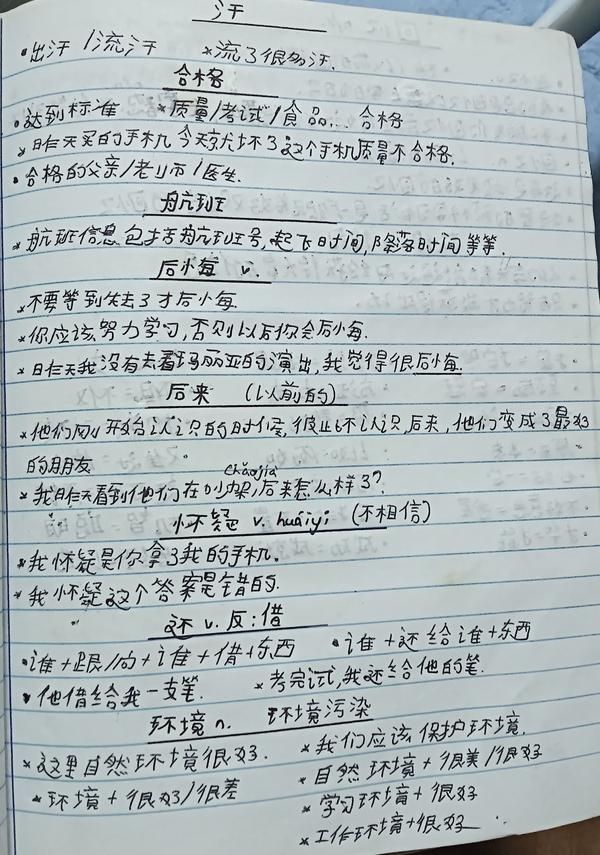 汗
•出汗 / 流汗 *流了很多汗.
合格
•达到标准 *质量/考试/食品... 合格
*昨天买的手机今天就坏了这个手机质量不合格.
•合格的父亲/老师/医生.
航班
*航班信息包括航班号,起飞时间,降落时间等等.
后悔 v.
*不要等到失去了才后悔.
*你应该努力学习,否则以后你会后悔.
*昨天我没有去看玛丽亚的演出,我觉得很后悔.
后来 (以前的)
*他们刚开始认识的时候,彼此不认识,后来,他们变成了最好
的朋友
chǎojià
*我昨天看到他们在吵架,后来怎么样了?
怀疑 v. huáiyí (不相信)
*我怀疑是你拿了我的手机.
*我怀疑这个答案是错的.
还 v. 反:借
•谁+跟/向+谁+借+东西 •谁+还给谁+东西
•他借给我一支笔. *考完试,我还给他的笔.
环境 n. 环境污染
*这里自然环境很好. *我们应该保护环境.
*环境+很好/很差 *自然环境+很美/很好
*学习环境+很好
*工作环境+很好